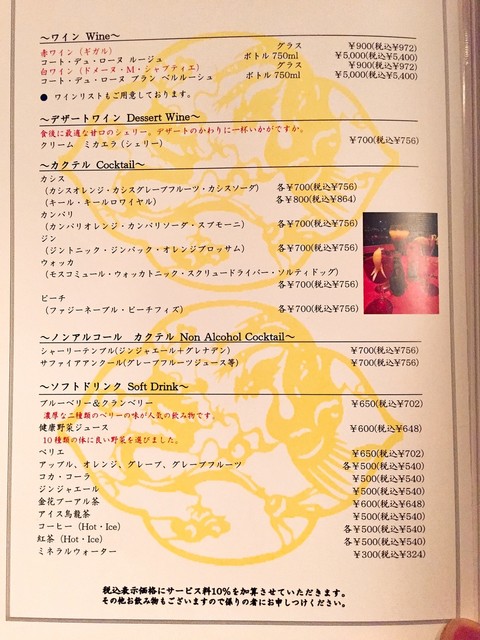 ～ワイン Wine～
赤ワイン（ギガル） グラス ￥900(税込¥972)
コート・デュ・ローヌ ルージュ ボトル 750ml ￥5,000(税込¥5,400)
白ワイン（ドメーヌ・M・シャプティエ） グラス ￥900(税込¥972)
コート・デュ・ローヌ ブラン ベルルーシュ ボトル 750ml ￥5,000(税込¥5,400)
● ワインリストもご用意しております。
～デザートワイン Dessert Wine～
食後に最適な甘口のシェリー。デザートのかわりに一杯いかがですか。
クリーム ミカエラ（シェリー） ￥700(税込¥756)
～カクテル Cocktail～
カシス
（カシスオレンジ・カシスグレープフルーツ・カシスソーダ） 各￥700(税込¥756)
（キール・キールロワイヤル） 各￥800(税込¥864)
カンパリ
（カンパリオレンジ・カンパリソーダ・スプモーニ） 各￥700(税込¥756)
ジン
（ジントニック・ジンバック・オレンジブロッサム） 各￥700(税込¥756)
ウォッカ
（モスコミュール・ウォッカトニック・スクリュードライバー・ソルティドッグ）
各￥700(税込¥756)
ピーチ
（ファジーネーブル・ピーチフィズ） 各￥700(税込¥756)
～ノンアルコール カクテル Non Alcohol Cocktail～
シャーリーテンプル(ジンジャエール＋グレナデン) ￥700(税込¥756)
サファイアアンクール(グレープフルーツジュース等) ￥700(税込¥756)
～ソフトドリンク Soft Drink～
ブルーベリー＆クランベリー ￥650(税込¥702)
濃厚な二種類のベリーの味が人気の飲み物です。
健康野菜ジュース ￥600(税込¥648)
10種類の体に良い野菜を選びました。
ペリエ ￥650(税込¥702)
アップル、オレンジ、グレープ、グレープフルーツ 各￥500(税込¥540)
コカ・コーラ ￥500(税込¥540)
ジンジャエール ￥500(税込¥540)
金花プーアル茶 ￥600(税込¥648)
アイス烏龍茶 ￥500(税込¥540)
コーヒー（Hot・Ice） 各￥500(税込¥540)
紅茶（Hot・Ice） 各￥500(税込¥540)
ミネラルウォーター ￥300(税込¥324)
税込表示価格にサービス料10％を加算させていただきます。
その他お飲み物もございますので係りの者にお申しつけください。